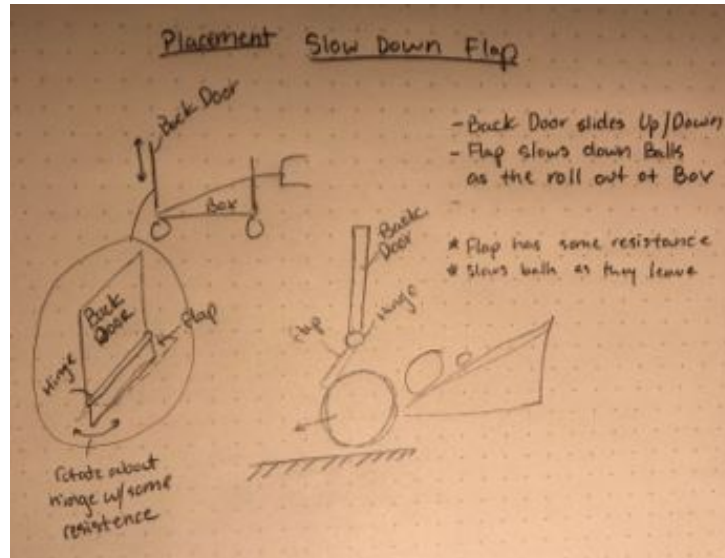 Placement Slow Down Flap
Back Door
Box
- Back Door slides Up/Down
- Flap slows down Balls
as the roll out of Box
* Flap has some resistance
* Slows balls as they leave
Back
Door
Flap
Hinge
Back
Door
Flap
Hinge
rotate about
hinge w/some
resistence